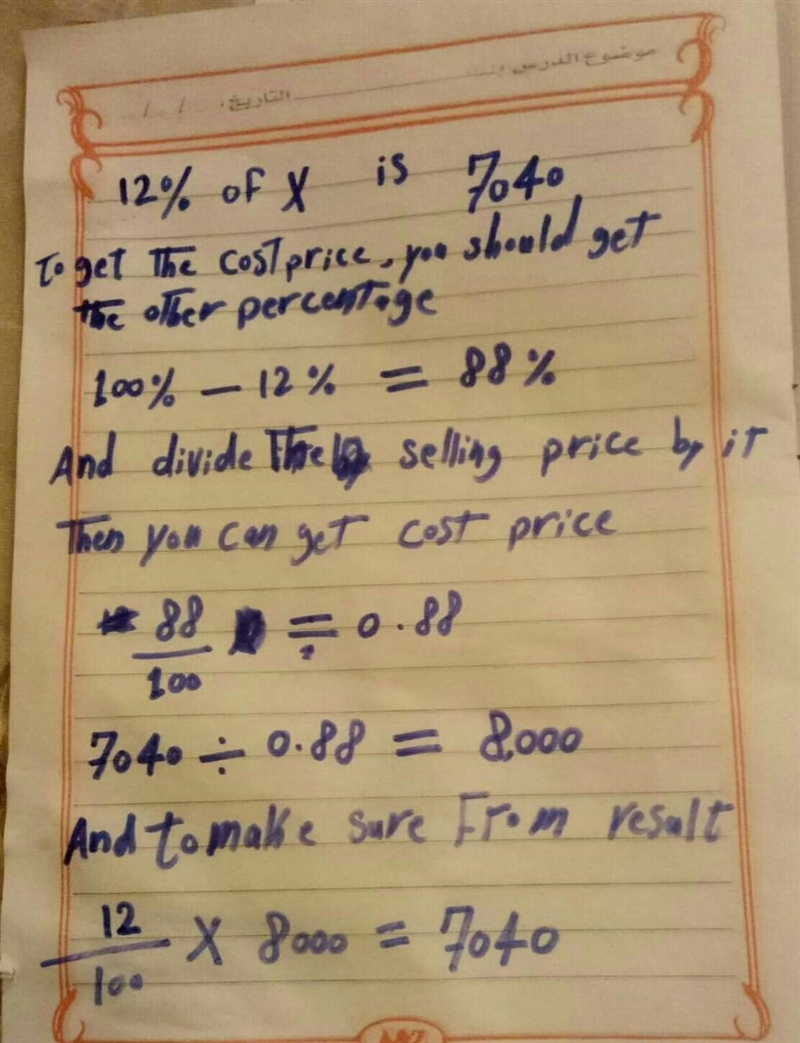 موضوع الدرس:
التاريخ: / /
12% of X is 7040
To get The cost price, you should get
the other percentage
100% — 12% = 88%
And divide The selling price by it
Then you can get cost price
88/100 = 0.88
7040 ÷ 0.88 = 8000
And to make sure From result
12/100 X 8000 = 7040